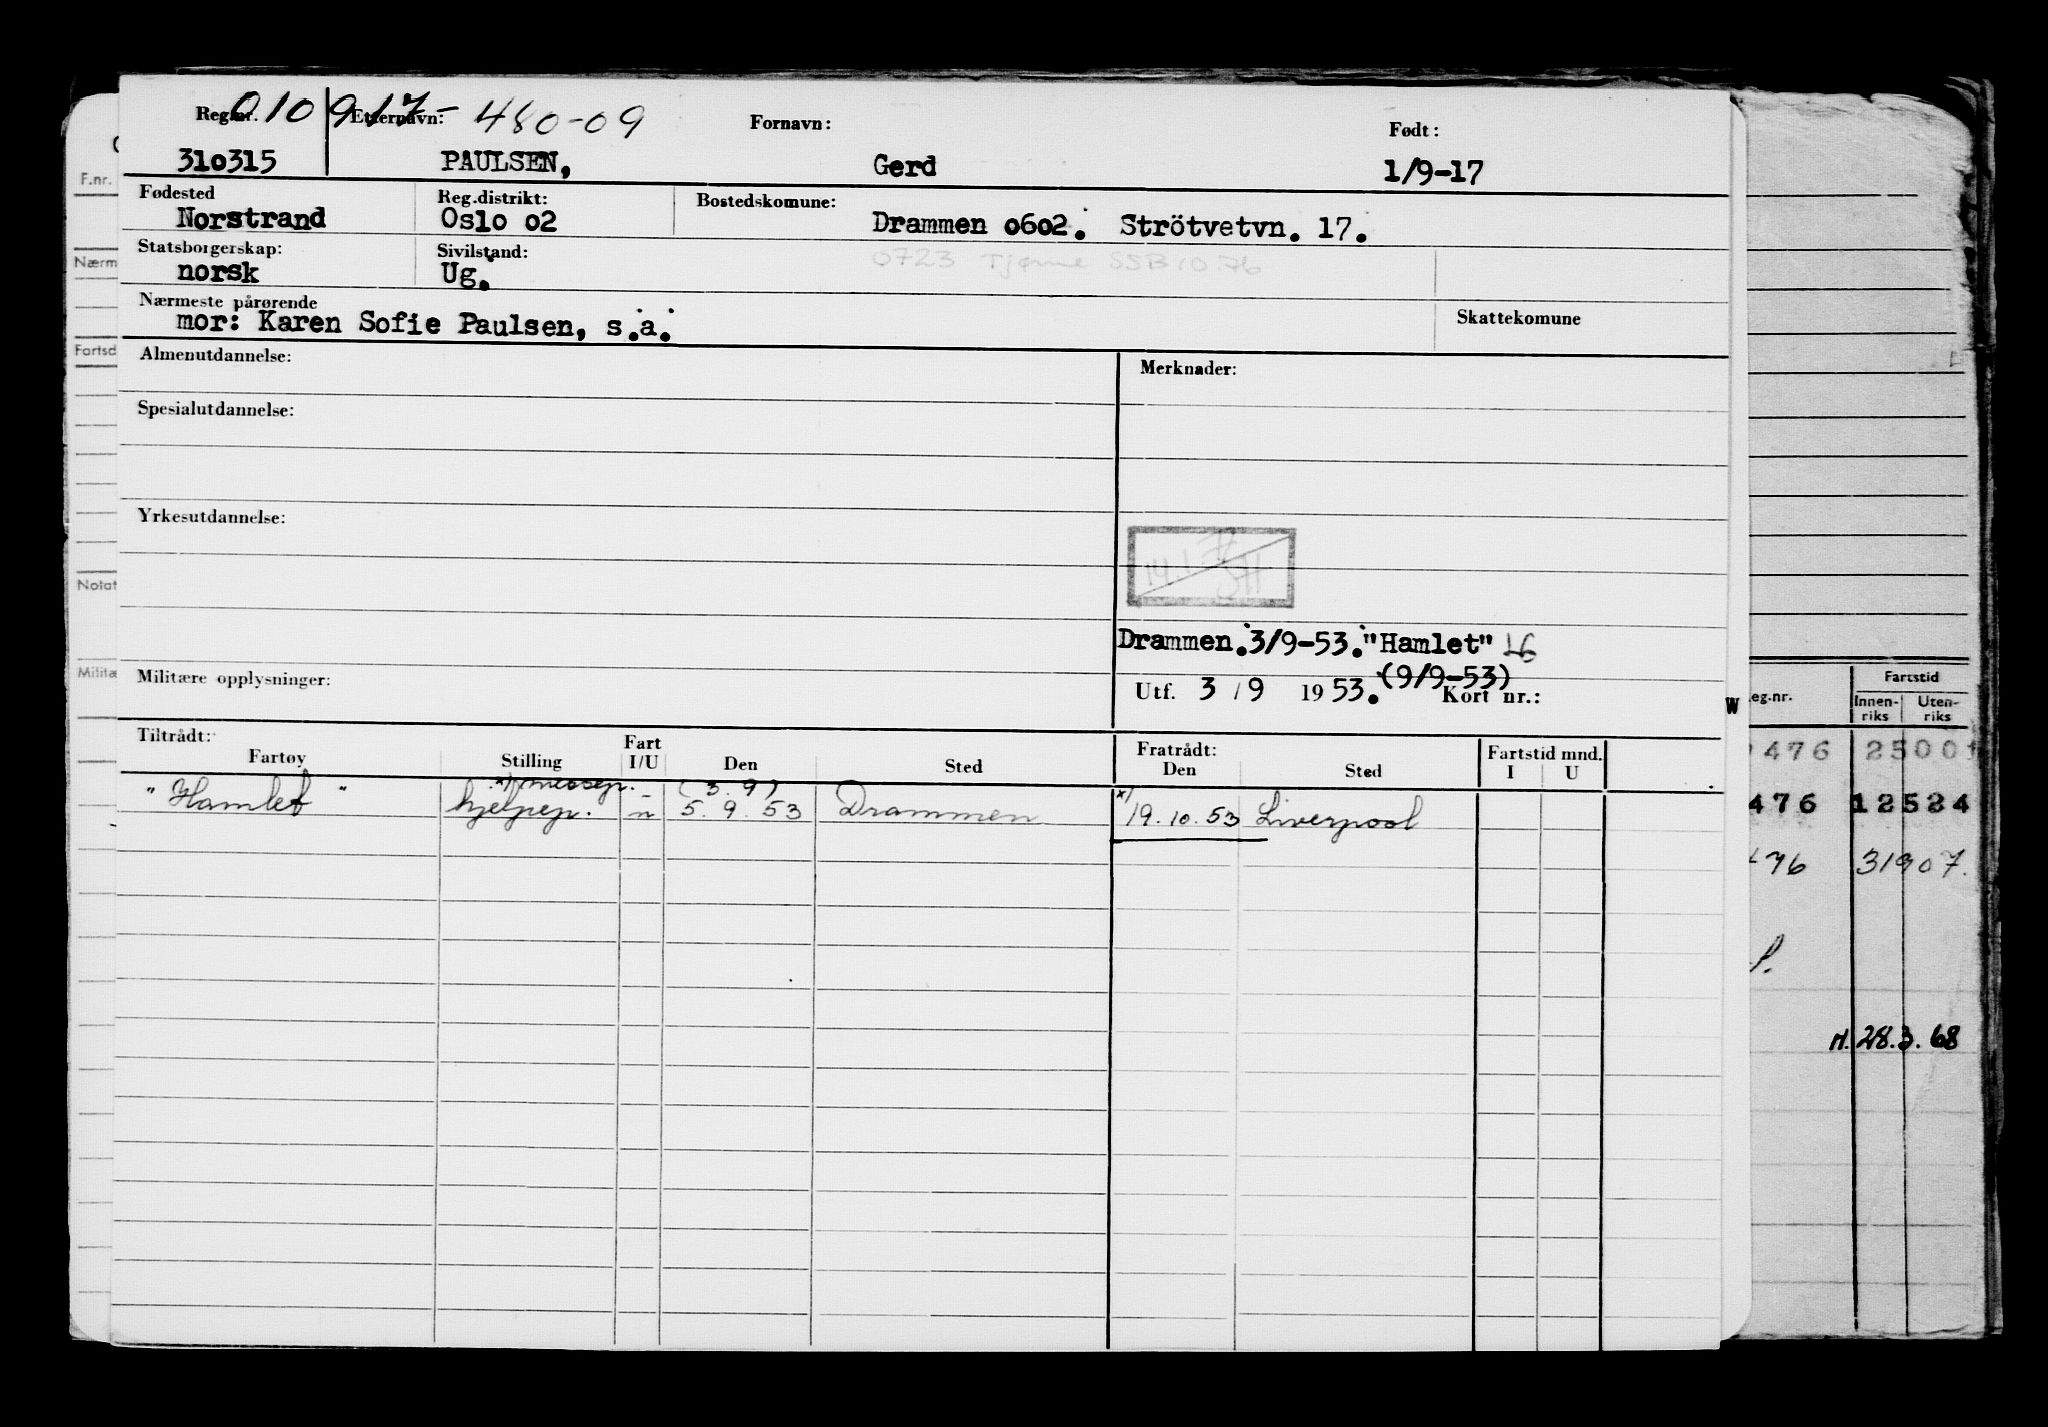 010917- 480-09
Reg.nr. Etternavn: Fornavn: Født:
310315 PAULSEN, Gerd 1/9-17
Fødested Reg.distrikt: Bostedskomune:
Norstrand Oslo 02 Drammen 0602. Strötvetvn. 17.
Statsborgerskap: Sivilstand:
norsk Ug. 0723 Tjøme SSB 10.76
Nærmeste pårørende Skattekomune
mor: Karen Sofie Paulsen, s.a.
Almenutdannelse: Merknader:
Spesialutdannelse:
Yrkesutdannelse:
Drammen.3/9-53."Hamlet"
(9/9-53)
Militære opplysninger: Utf. 3/9 1953. Kort nr.:
Tiltrådt: Fratrådt: Fartstid mnd.
Fartøy Stilling Fart I/U Den Sted Den Sted I U
x) messep. (3.9) x)
"Hamlet" hjelpep. u 5.9.53 Drammen 19.10.53 Liverpool
F.nr.
Nærm
Fartsd
Notat
Militæ
W
eg.nr. Fartstid
Innenriks Utenriks
476 2500
476 12524
76 31907.
28.3.68